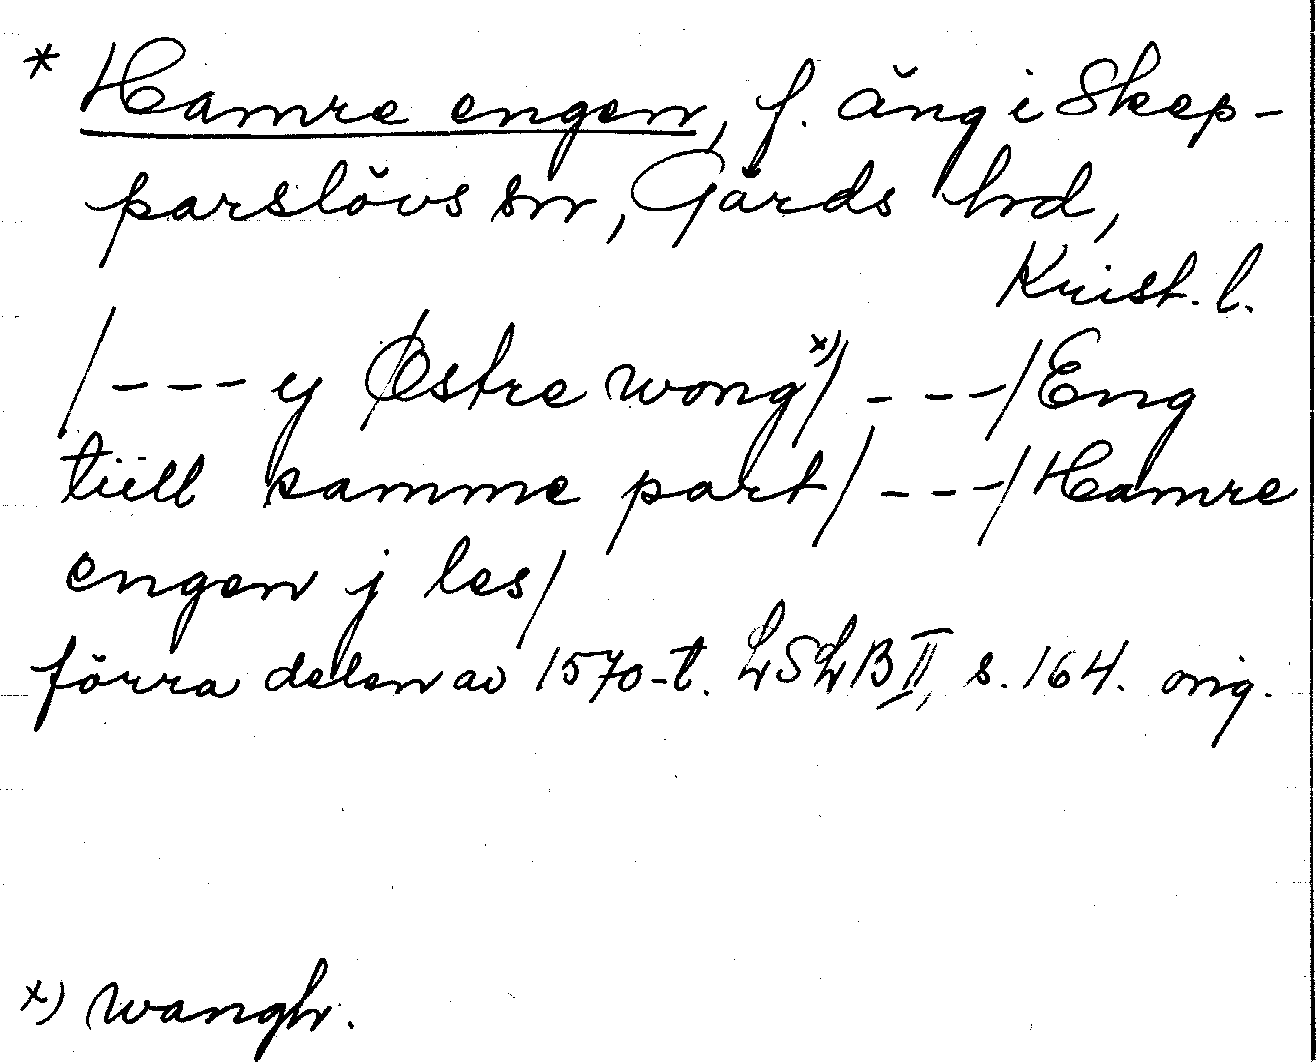 * Hamre engen, f. äng i Skep-
parslövs sn, Gärds hd,
Krist. l.
/--- y Østre wong x)/ ---/ Eng
tiill samme part/ ---/ Hamre
engen j les/
förra delen av 1570-t. LSLB II, s. 164. orig.
x) wangh.